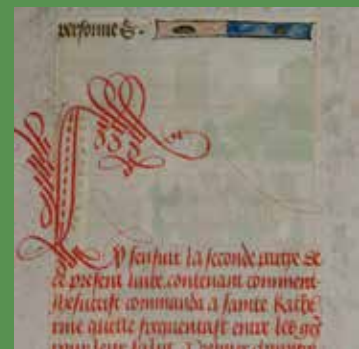 personne &.
Y sensuit la seconde partye de
ce present livre, contenant comment
ihesucrist commanda a sainte Kathe
rine quelle frequentast entre les gēs
pour leur salut